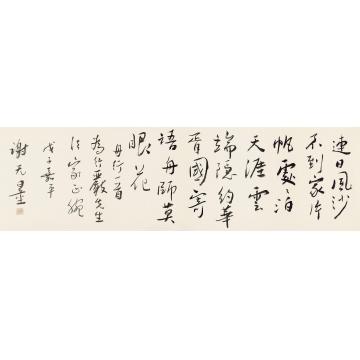 連日風沙
不到家片
帆處〻泊
天涯雲
端隱約華
胥國寄
語舟師莫
眼花
舟行一首
為行嚴先生
法家正腕
戊子嘉平
謝无量